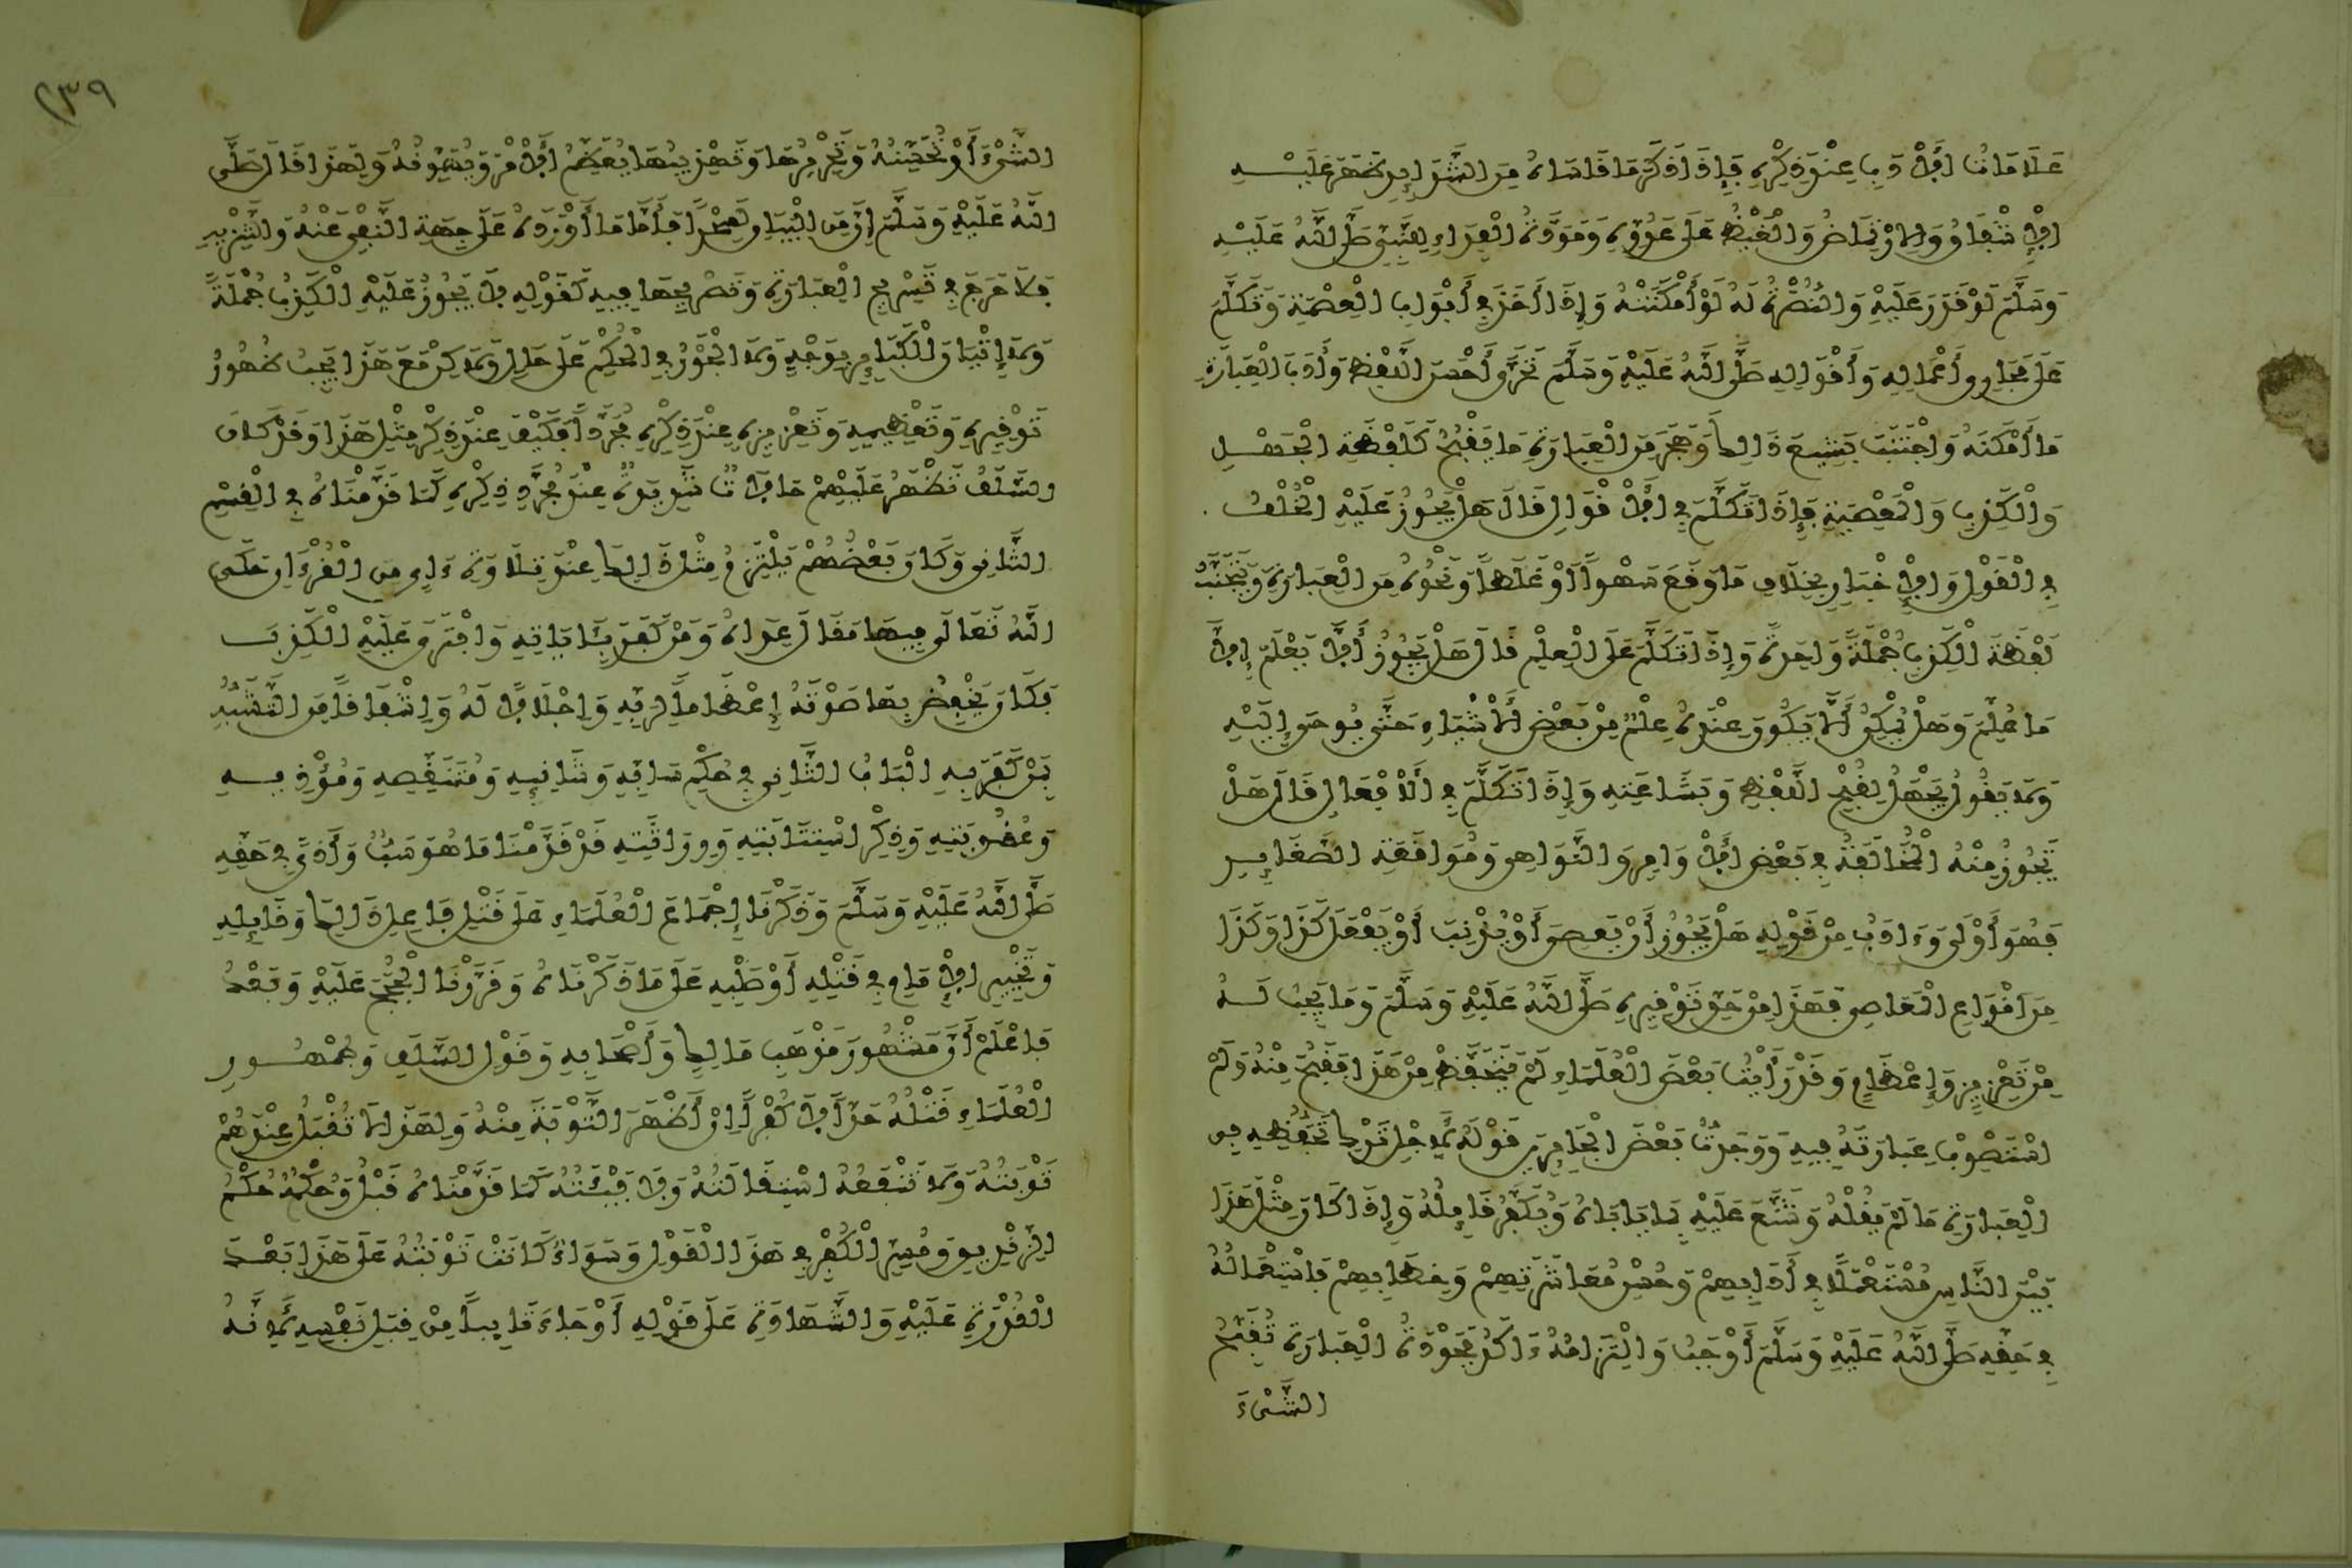 عَلَامَاتُ الْأَدَبِ عِنْدَ ذِكْرِهِ فَإِذَا ذَكَرَ مَا قَاسَاهُ مِنَ الشَّدَائِدِ ظَهَرَ عَلَيْهِ
الْإِشْفَاقُ وَالِارْتِمَاضُ وَالْغَيْظُ عَلَى عَدُوِّهِ وَمَوَدَّةُ الْفِدَاءِ لِلنَّبِيِّ صَلَّى اللَّهُ عَلَيْهِ
وَسَلَّمَ لَوْ قَدَرَ عَلَيْهِ وَالنُّصْرَةُ لَهُ لَوْ أَمْكَنَتْهُ وَإِذَا أَخَذَ فِي أَبْوَابِ الْعِصْمَةِ وَتَكَلَّمَ
عَلَى مَجَارِي أَعْمَالِهِ وَأَقْوَالِهِ صَلَّى اللَّهُ عَلَيْهِ وَسَلَّمَ تَحَرَّى أَحْسَنَ اللَّفْظِ وَأَدَبَ الْعِبَارَةِ
مَا أَمْكَنَهُ وَاجْتَنَبَ بَشِيعَ ذَالِكَ وَهَجَرَ مِنَ الْعِبَارَةِ مَا يَقْبُحُ كَلَفْظَةِ الْجَهْلِ
وَالْكَذِبِ وَالْمَعْصِيَةِ فَإِذَا تَكَلَّمَ فِي الْأَقْوَالِ قَالَ هَلْ يَجُوزُ عَلَيْهِ الْخُلْفُ
فِي الْقَوْلِ وَالْإِخْبَارِ بِخِلَافِ مَا وَقَعَ سَهْواً أَوْ غَلَطاً وَنَحْوُهُ مِنَ الْعِبَارَةِ وَيَتَجَنَّبُ
لَفْظَةَ الْكَذِبِ جُمْلَةً وَاحِدَةً وَإِذَا تَكَلَّمَ عَلَى الْعِلْمِ قَالَ هَلْ يَجُوزُ أَلَّا يَعْلَمَ إِلَّا
مَا عُلِّمَ وَهَلْ يُمْكِنُ أَلَّا يَكُونَ عِنْدَهُ عِلْمٌ مِنْ بَعْضِ الْأَشْيَاءِ حَتَّى يُوحَى إِلَيْهِ
وَلَا يَقُولُ يَجْهَلُ لِقُبْحِ اللَّفْظِ وَبَشَاعَتِهِ وَإِذَا تَكَلَّمَ فِي الْأَفْعَالِ قَالَ هَلْ
تَجُوزُ مِنْهُ الْمُخَالَفَةُ فِي بَعْضِ الْأَوَامِرِ وَالنَّوَاهِي وَمُوَاقَعَةِ الصَّغَائِرِ
فَهُوَ أَوْلَى وَءَادَبُ مِنْ قَوْلِهِ هَلْ يَجُوزُ أَنْ يَعْصِيَ أَوْ يُذْنِبَ أَوْ يَفْعَلَ كَذَا وَكَذَا
مِنْ أَنْوَاعِ الْمَعَاصِي فَهَذَا مِنْ حَقِّ تَوْقِيرِهِ صَلَّى اللَّهُ عَلَيْهِ وَسَلَّمَ وَمَا يَجِبُ لَهُ
مِنْ تَعْزِيزٍ وَإِعْظَامٍ وَقَدْ رَأَيْتُ بَعْضَ الْعُلَمَاءِ لَمْ يَتَحَفَّظْ مِنْ هَذَا فَقَبُحَ مِنْهُ وَلَمْ
اسْتَصْوِبْ عِبَارَتَهُ فِيهِ وَوَجَدْتُ بَعْضَ الْجَائِرِينَ قَوَّلَهُ لِأَجْلِ تَرْكِ تَحَفُّظِهِ فِي
الْعِبَارَةِ مَا لَمْ يَقُلْهُ وَشَنَّعَ عَلَيْهِ بِمَا يَأْبَاهُ وَيُكَفِّرُ قَائِلَهُ وَإِذَا كَانَ مِثْلُ هَذَا
بَيْنَ النَّاسِ مُسْتَعْمَلًا فِي آدَابِهِمْ وَحُسْنِ مُعَاشَرَتِهِمْ وَخِطَابِهِمْ فَاسْتِعْمَالُهُ
فِي حَقِّهِ صَلَّى اللَّهُ عَلَيْهِ وَسَلَّمَ أَوْجَبُ وَالْتِزَامُهُ ءَاكَدُ فَجَوْدَةُ الْعِبَارَةِ تُقَبِّحُ
الشَّيْءَ
٢٣٩
الشَّيْءَ أَوْ تُحَسِّنُهُ وَتَحْرِيرُهَا وَتَهْذِيبُهَا يُعَظِّمُ الْأَمْرَ وَيُهَوِّنُهُ وَلِهَذَا قَالَ صَلَّى
اللَّهُ عَلَيْهِ وَسَلَّمَ إِنَّ مِنَ الْبَيَانِ لَسِحْراً فَأَمَّا مَا أَوْرَدَهُ عَلَى جِهَةِ النَّفْيِ عَنْهُ وَالتَّنْزِيهِ
فَلَا حَرَجَ فِي تَسْرِيحِ الْعِبَارَةِ وَتَصْرِيحِهَا فِيهِ كَقَوْلِهِ لَا يَجُوزُ عَلَيْهِ الْكَذِبُ جُمْلَةً
وَلَا إِتْيَانُ الْكَبَائِرِ بِوَجْهٍ وَلَا الْجَوْرُ فِي الْحُكْمِ عَلَى حَالٍ وَلَكِنْ مَعَ هَذَا يَجِبُ ظُهُورُ
تَوْقِيرِهِ وَتَعْظِيمِهِ وَتَعْزِيزِهِ عِنْدَ ذِكْرِهِ مُجَرَّداً فَكَيْفَ عِنْدَ ذِكْرِ مِثْلِ هَذَا وَقَدْ كَانَ
السَّلَفُ تَظْهَرُ عَلَيْهِمْ حَالَاتٌ شَدِيدَةٌ عِنْدَ مُجَرَّدِ ذِكْرِهِ كَمَا قَدَّمْنَاهُ فِي الْقِسْمِ
الثَّانِي وَكَانَ بَعْضُهُمْ يَلْتَزِمُ مِثْلَ ذَالِكَ عِنْدَ تِلَاوَةِ ءَايٍ مِنَ الْقُرْءَانِ حَكَى
اللَّهُ تَعَالَى فِيهَا مَقَالَ عِدَاهُ وَمَنْ كَفَرَ بِئَايَاتِهِ وَافْتَرَى عَلَيْهِ الْكَذِبَ
فَكَانَ يَخْفِضُ بِهَا صَوْتَهُ إِعْظَاماً لِرَبِّهِ وَإِجْلَالًا لَهُ وَإِشْفَاقاً مِنَ التَّشَبُّهِ
بِمَنْ كَفَرَ بِهِ الْبَابُ الثَّانِي فِي حُكْمِ سَابِّهِ وَشَانِئِهِ وَمُتَنَقِّصِهِ وَمُؤْذِيهِ
وَعُقُوبَتِهِ وَذِكْرِ اسْتِتَابَتِهِ وَوِرَاثَتِهِ قَدْ قَدَّمْنَا مَا هُوَ سَبٌّ وَأَذًى فِي حَقِّهِ
صَلَّى اللَّهُ عَلَيْهِ وَسَلَّمَ وَذَكَرْنَا إِجْمَاعَ الْعُلَمَاءِ عَلَى قَتْلِ فَاعِلِ ذَالِكَ وَقَائِلِهِ
وَتَخْيِيرِ الْإِمَامِ فِي قَتْلِهِ أَوْ صَلْبِهِ عَلَى مَا ذَكَرْنَاهُ وَقَرَّرْنَا الْحُجَجَ عَلَيْهِ وَبَعْدُ
فَاعْلَمْ أَنَّ مَشْهُورَ مَذْهَبِ مَالِكٍ وَأَصْحَابِهِ وَقَوْلِ السَّلَفِ وَجُمْهُورِ
الْعُلَمَاءِ قَتْلُهُ حَدّاً لَا كُفْراً إِنْ أَظْهَرَ التَّوْبَةَ مِنْهُ وَلِهَذَا لَا تُقْبَلُ عِنْدَهُمْ
تَوْبَتُهُ وَلَا تَنْفَعُهُ اسْتِقَالَتُهُ وَلَا فَيْئَتُهُ كَمَا قَدَّمْنَاهُ قَبْلُ وَحُكْمُهُ حُكْمُ
الزِّنْدِيقِ وَمُسِرِّ الْكُفْرِ فِي هَذَا الْقَوْلِ وَسَوَاءٌ كَانَتْ تَوْبَتُهُ عَلَى هَذَا بَعْدَ
الْقُدْرَةِ عَلَيْهِ وَالشَّهَادَةِ عَلَى قَوْلِهِ أَوْ جَاءَ تَائِباً مِنْ قِبَلِ نَفْسِهِ لِأَنَّهُ